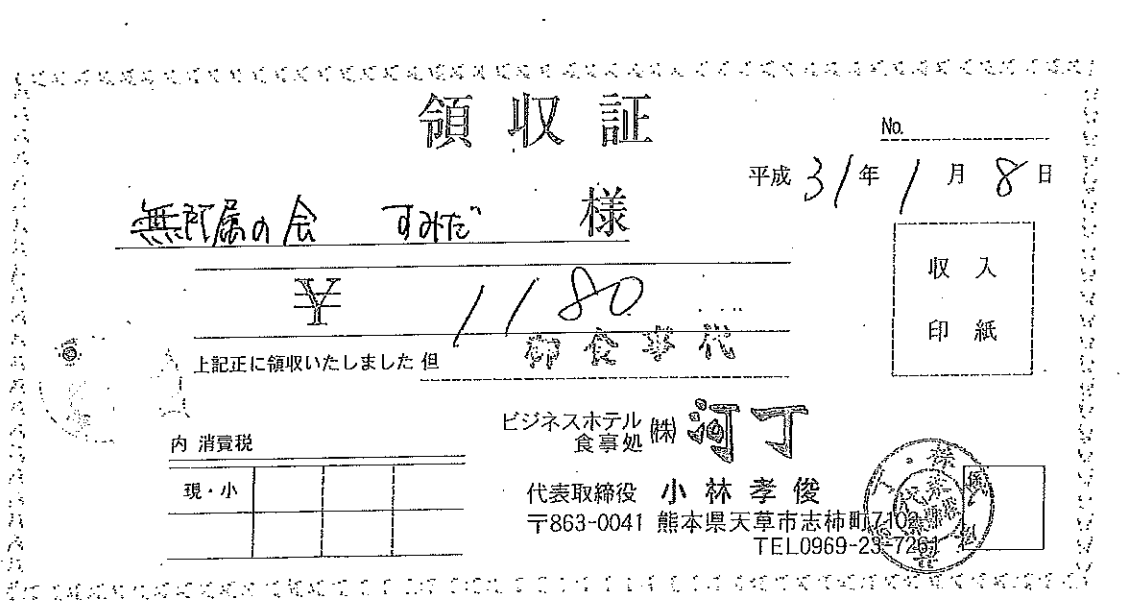 領収証
No.
平成 31年 1月 8日
無所属の会 すみだ 様
¥ 1180
収入
印紙
上記正に領収いたしました 但 御食事代
内 消費税
現・小
ビジネスホテル
食事処 ㈱ 河丁
代表取締役 小林孝俊
〒863-0041 熊本県天草市志柿町7102
TEL0969-23-7261
係